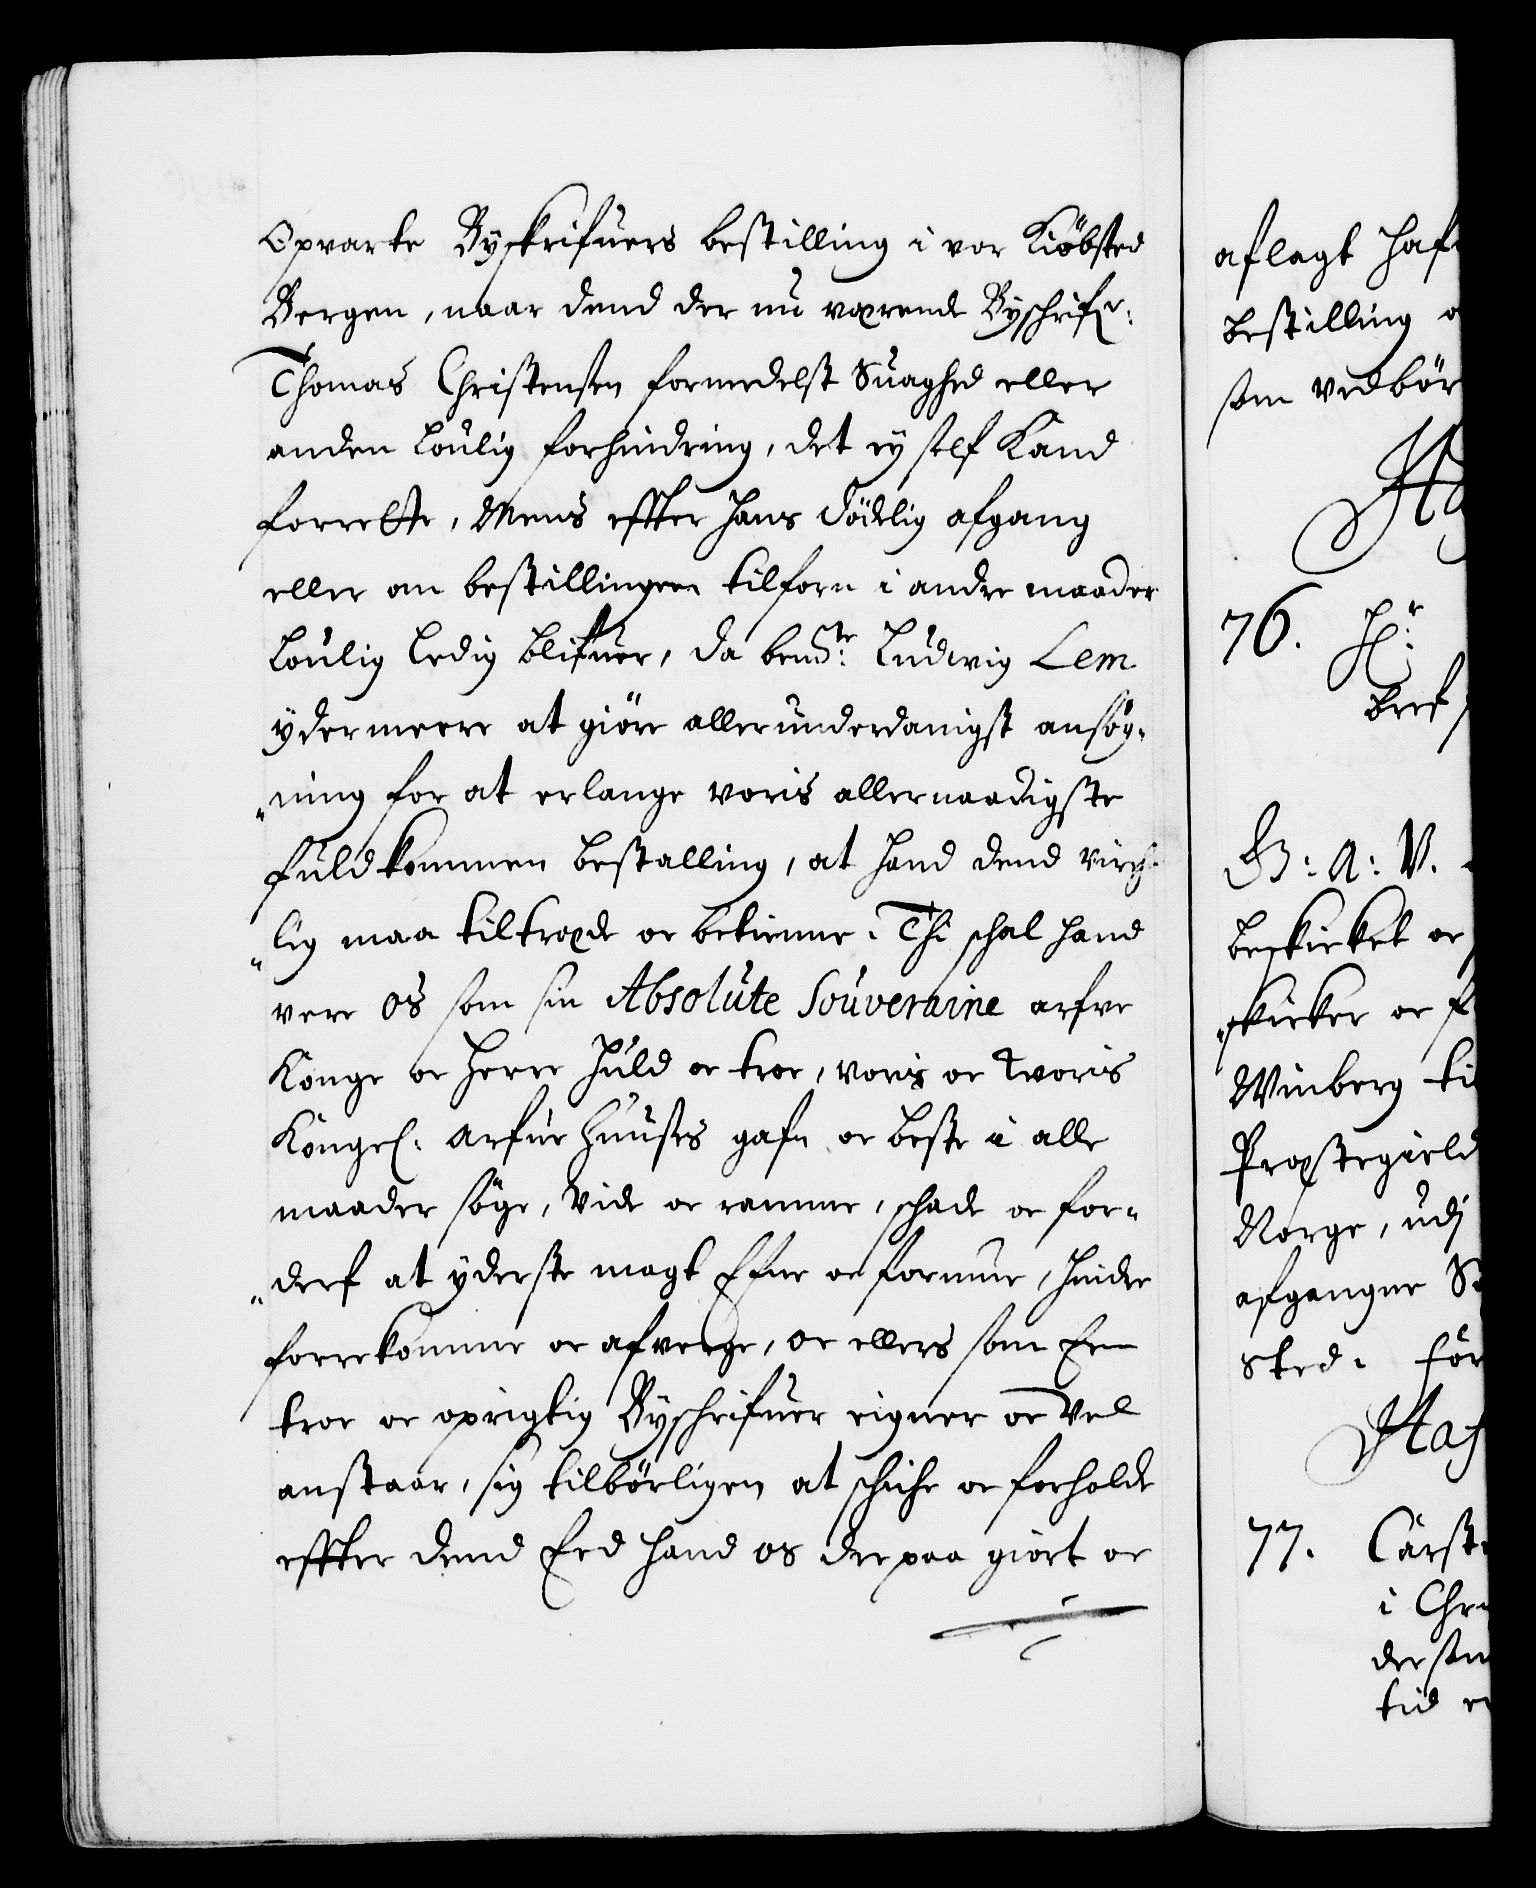 Opvarte Byskrifuers bestilling i vor Kiöbsted
Bergen, naar dend der nu værende Byschrifr:
Thomas Christensen formedelst Suaghed eller
anden loulig forhindring, det ey self Kand
forrette, Mens effter hans Dödelig afgang
eller om bestillingen tilforn i andre maader
loulig ledig blifuer, da bemte: Ludwig Lem
ydermeere at giöre allerunderdanigst ansög-
"ning for at erlange voris allernaadigste
fuldkommen bestalling, at hand dend virch-
"lig maa tiltræde oc betienne. Thi schal hand
vere Os som sin Absolute Souveraine arfve
Konge oc Herre huld oc troe, voris oc Worris
Kongel: Arfue Huuses gafn oc beste i alle
maader söge, vide oc ramme, schade oc for-
"derf at yderste magt Efne oc formue, hindre
forrekomme oc afverge, oc ellers som Een
troe oc oprigtig Byschrifuer eigner oc Vel
anstaar, sig tilbörligen at schicke oc forholde
effter dend Eed hand os derpaa giort oc
aflagt haf
bestilling o
som vedbör
Ha
76. Hr:
bref
G: A: V.
beskicket oc
"skicker oc f
Winberg ti
Præstegield
Norge, udj
afgangne S
sted. för
Haf
77. Carst
i Chr
der som
tid e